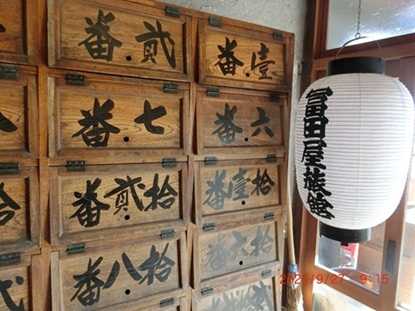 壹番
貳番
六番
七番
拾壹番
拾貳番
拾六番
拾八番
冨田屋旅館
9:15